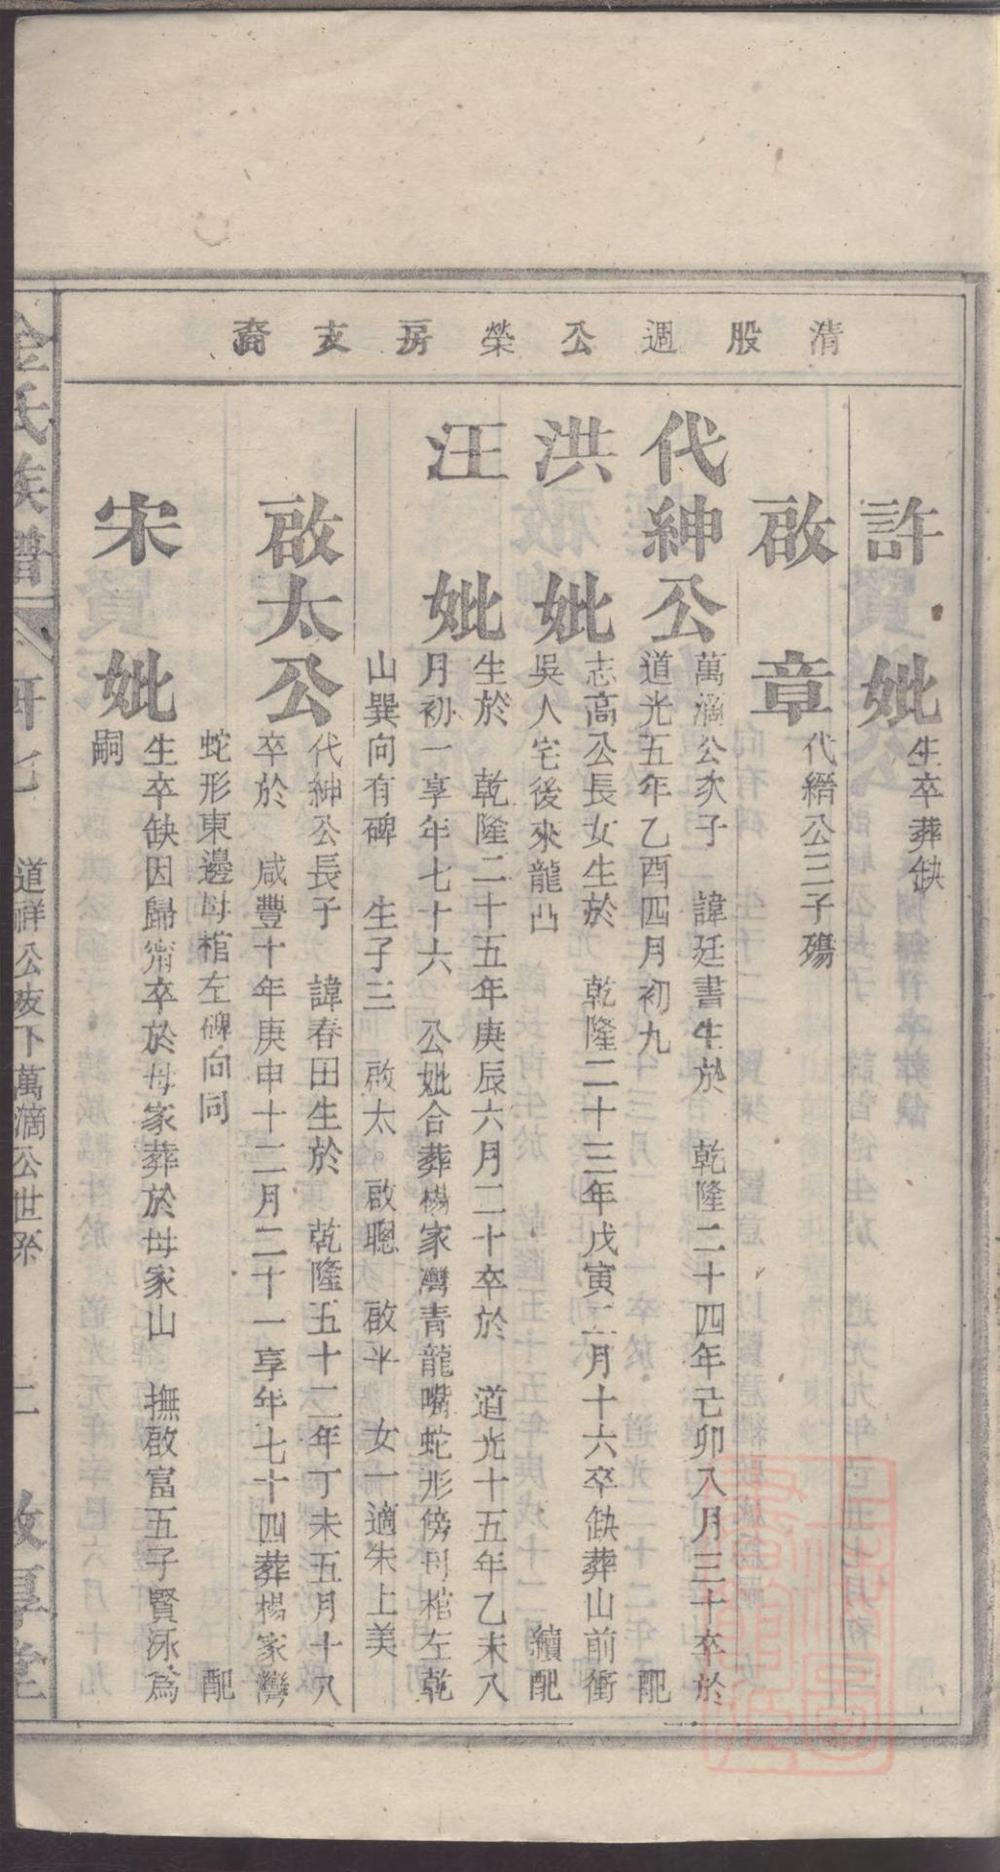 清股週公榮房支裔
許妣
生卒葬缺
啟章
代縉公三子殤
代紳公
萬滴公次子 諱廷書生於 乾隆二十四年己卯八月三十卒於
道光五年乙酉四月初九 配
洪妣
志高公長女生於 乾隆二十三年戊寅二月十六卒缺葬山前衝
吳人宅後來龍凸 續配
汪妣
生於 乾隆二十五年庚辰六月二十卒於 道光十五年乙未八
月初一享年七十六 公妣合葬楊家灣青龍嘴蛇形傍母棺左乾
山巽向有碑 生子三 啟太。啟聰 啟半 女一適朱上美
啟太公
代紳公長子 諱春田生於 乾隆五十二年丁未五月十八
卒於 咸豐十年庚申十二月二十一享年七十四葬楊家灣
蛇形東邊母棺左碑向同 配
宋妣
生卒缺因歸甯卒於母家葬於母家山 撫啟富五子賢泳爲
嗣
金氏族譜
卷卅七 道祥公友下萬滴公世系
二
敦厚堂